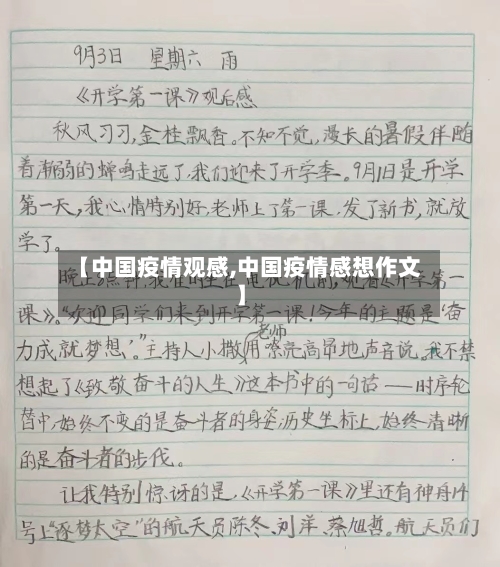 9月3日 星期六 雨
《开学第一课》观后感
秋风习习,金桂飘香。不知不觉,漫长的暑假伴随
着渐弱的蝉鸣走远了,我们迎来了开学季。9月1日是开学
第一天,我心情特别好,老师上了第一课,发了新书,就放
学了。
【中国疫情观感,中国疫情感想作文
】
晚上8点钟,我准时坐在电视机前,观看《开学第一
课》。“欢迎同学们来到开学第一课!今年的主题是‘奋
力成就梦想’。”主持人小撒老师用嘹亮高昂地声音说。我不禁
想起了《致敬奋斗的人生》这本书中的一句话——时序轮
替中,始终不变的是奋斗者的身姿,历史坐标上,始终清晰
的是奋斗者的步伐。
让我特别惊讶的是,《开学第一课》里还有神舟14
号上“逐梦太空”的航天员陈冬、刘洋、蔡旭哲。航天员们